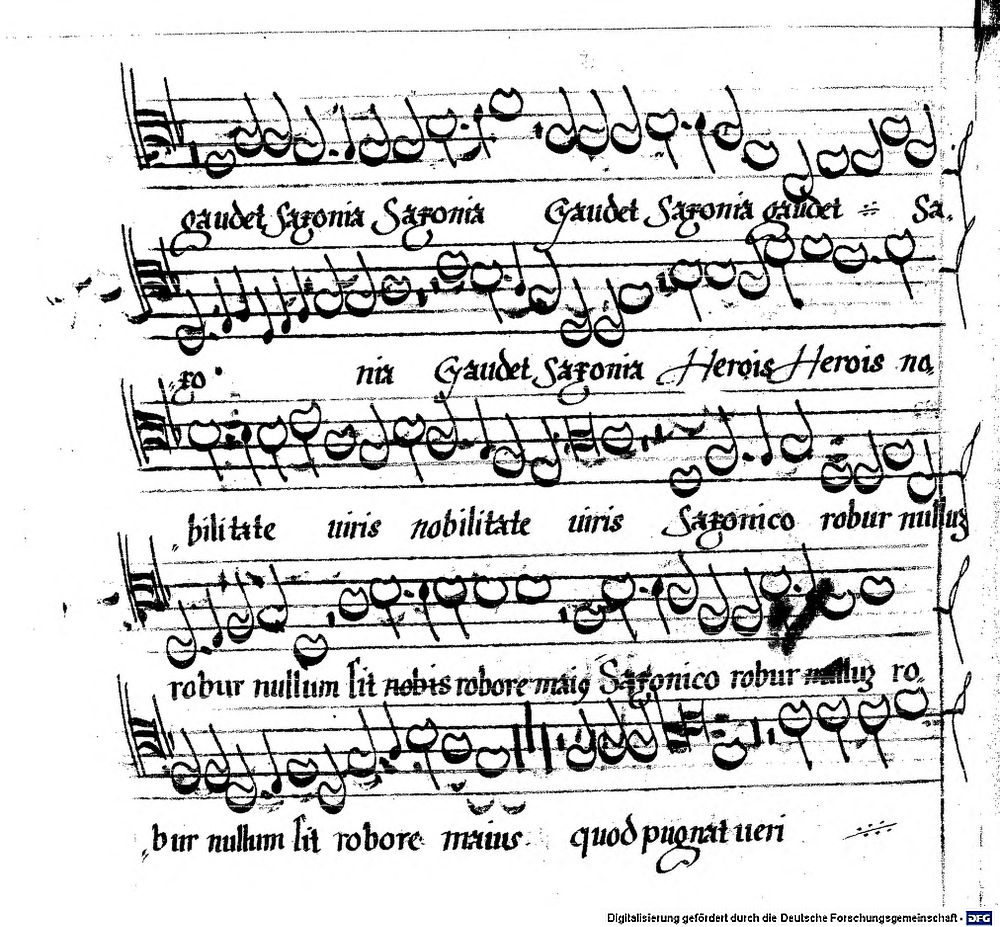 gaudet Saxonia Saxonia Gaudet Saxonia gaudet :: Sa,
xo nia Gaudet Saxonia Herois Herois no,
bilitate uiris nobilitate uiris Saxonico robur nulluz
robur nullum sit nobis robore maiq Saxonico robur nulluz ro,
bur nullum sit robore maius quod pugnat ueri
Digitalisierung gefördert durch die Deutsche Forschungsgemeinschaft - DFG